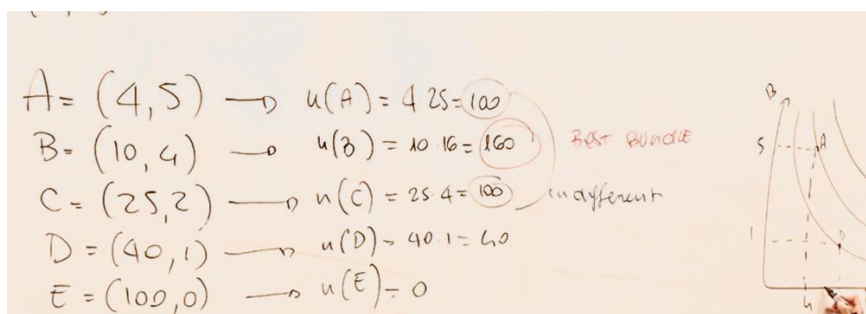 A = (4,5) → u(A) = 4 25 = 100
B = (10,4) → u(B) = 10·16 = 160 BEST BUNDLE
C = (25,2) → u(C) = 25·4 = 100 indifferent
D = (40,1) → u(D) = 40·1 = 40
E = (100,0) → u(E) = 0
B
5
A
1
D
4